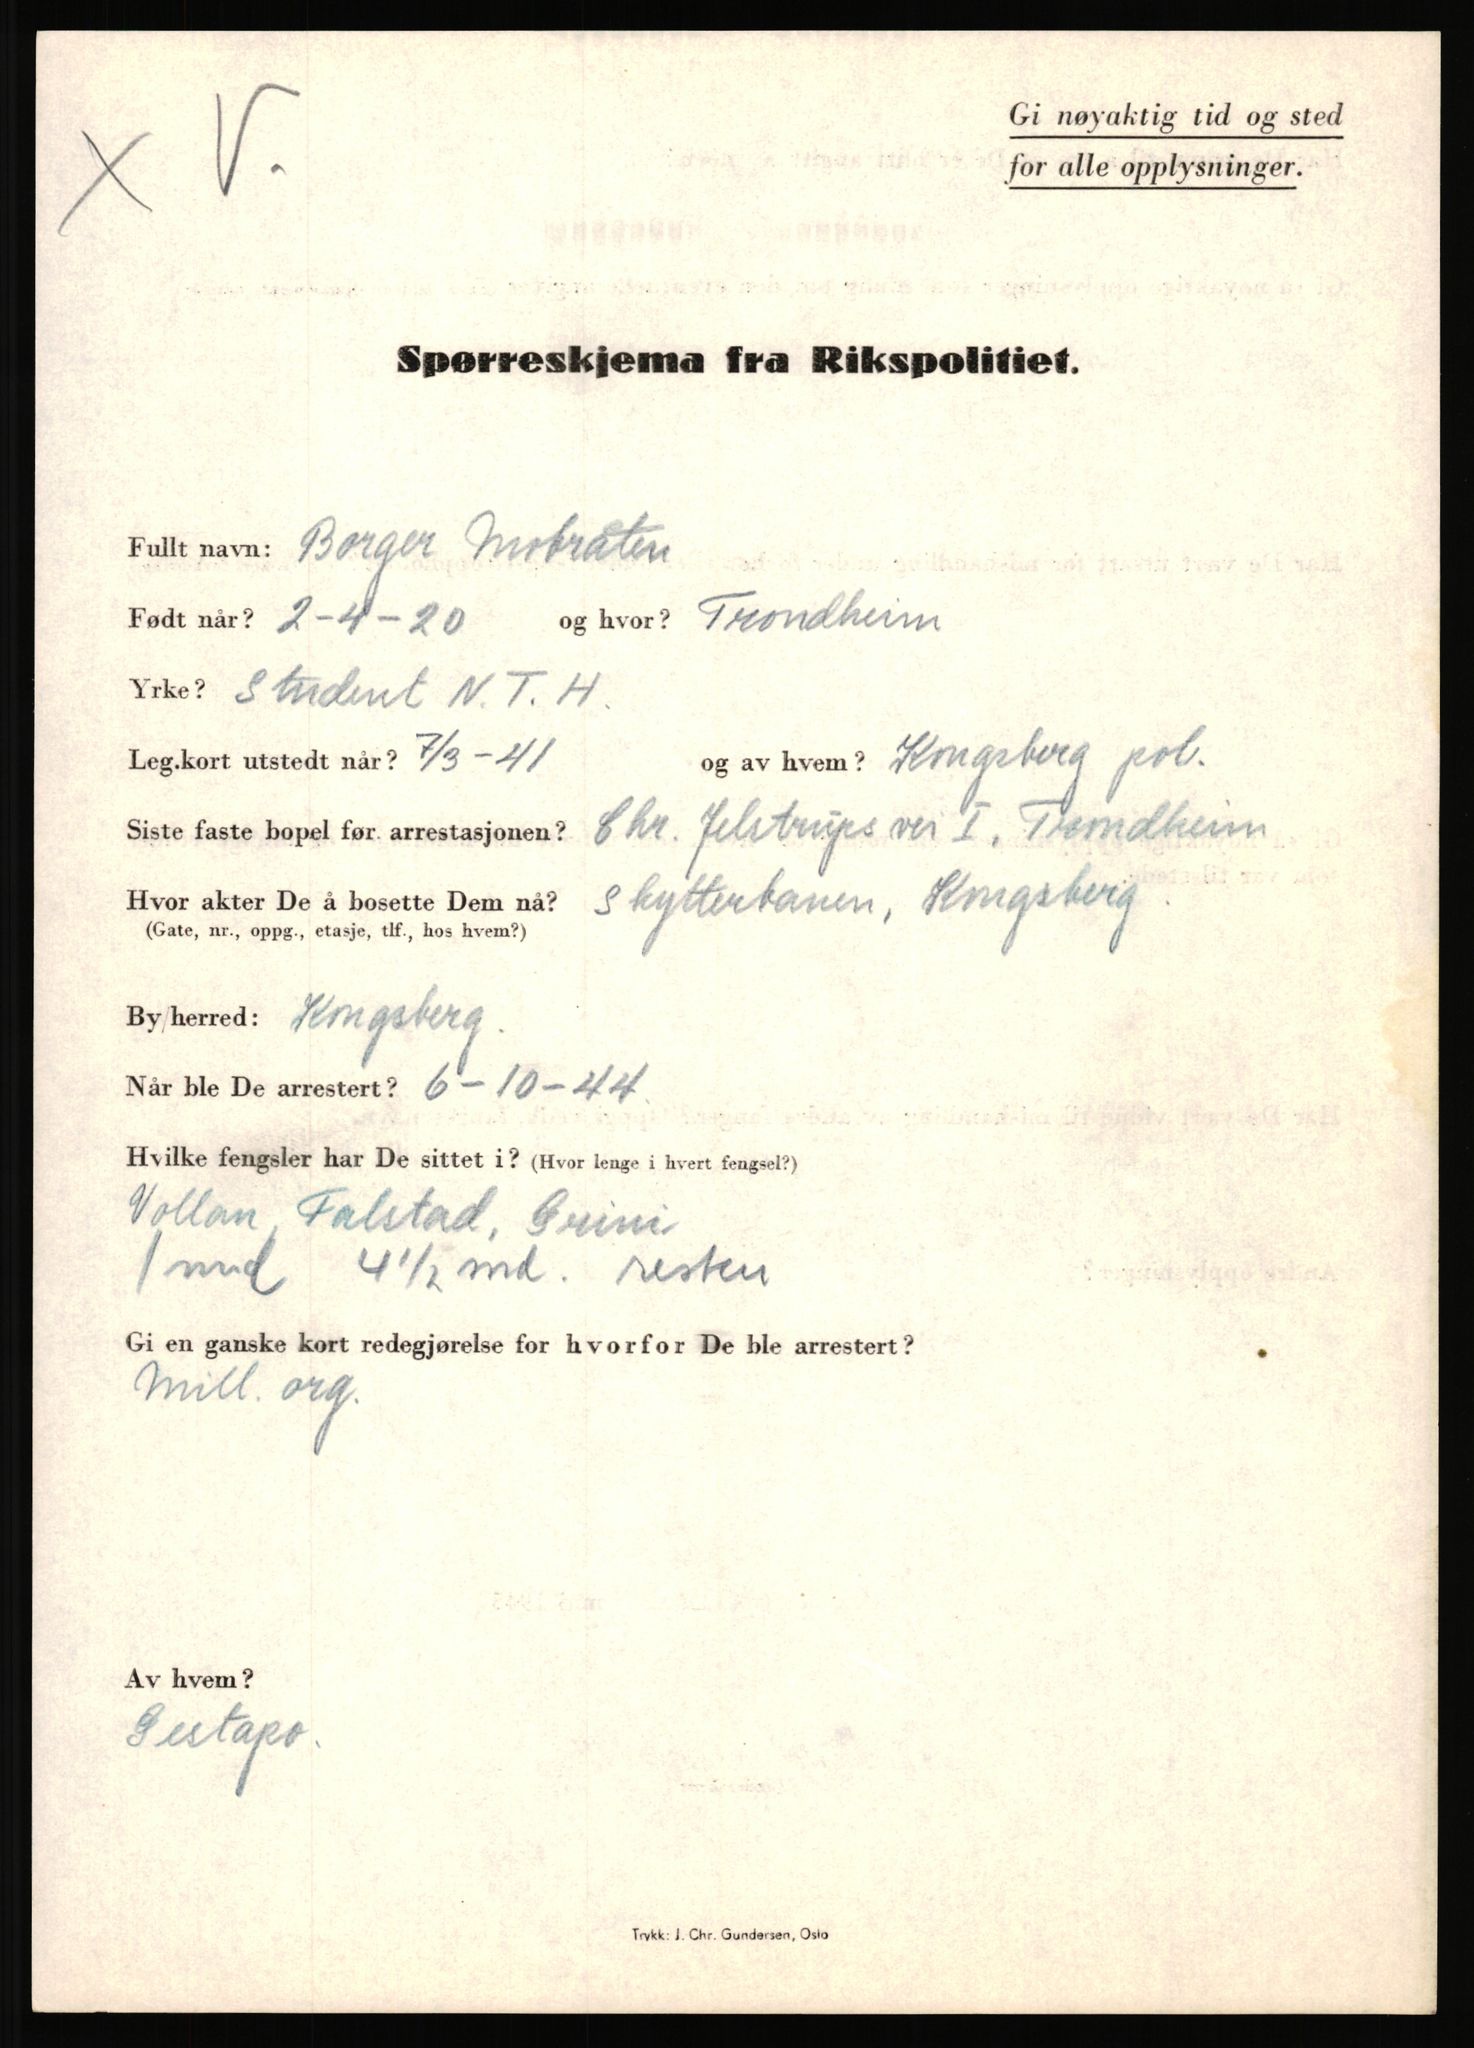 X V.
Gi nøyaktig tid og sted
for alle opplysninger.
Spørreskjema fra Rikspolitiet.
Fullt navn: Borger Mobråten
Født når? 2-4-20 og hvor? Trondheim
Yrke? Student N.T.H.
Leg.kort utstedt når? 7/3-41 og av hvem? Kongsberg pol.
Siste faste bopel før arrestasjonen? Chr. Jelstrups vei I, Trondheim
Hvor akter De å bosette Dem nå? Skytterbanen, Kongsberg.
(Gate, nr., oppg., etasje, tlf., hos hvem?)
By/herred: Kongsberg.
Når ble De arrestert? 6-10-44.
Hvilke fengsler har De sittet i? (Hvor lenge i hvert fengsel?)
Vollan, Falstad, Grini
1 mnd 4 1/2 md. resten
Gi en ganske kort redegjørelse for hvorfor De ble arrestert?
Mill. org.
Av hvem?
Gestapo.
Trykk: J. Chr. Gundersen, Oslo